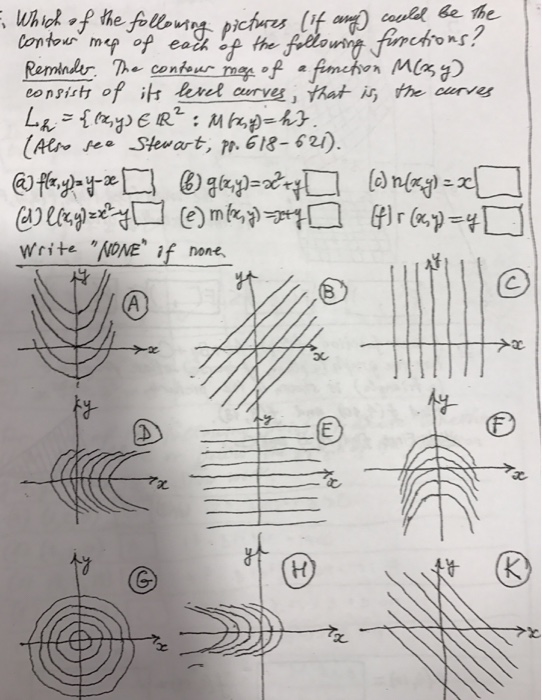 Which of the following pictures (if any) could be the
contour map of each of the following functions?
Reminder. The contour map of a function M(x,y)
consists of its level curves, that is, the curves
L_h = {(x,y) ∈ ℝ² : M(x,y) = h}.
(Also see Stewart, pp. 618-621).
(a) f(x,y) = y-x (b) g(x,y) = x²+y (c) n(x,y) = x
(d) l(x,y) = x²-y (e) m(x,y) = x+y (f) r(x,y) = y
Write "NONE" if none.
y A x y B x y C x
y D x y E x y F x
y G x y H x y K x